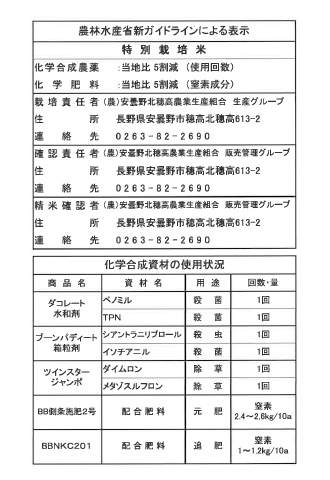 農林水産省新ガイドラインによる表示
特別栽培米
化学合成農薬：当地比5割減（使用回数）
化学肥料：当地比5割減（窒素成分）
栽培責任者 (農)安曇野北穂高農業生産組合 生産グループ
住所 長野県安曇野市穂高北穂高613-2
連絡先 0263-82-2690
確認責任者 (農)安曇野北穂高農業生産組合 販売管理グループ
住所 長野県安曇野市穂高北穂高613-2
連絡先 0263-82-2690
精米確認者 (農)安曇野北穂高農業生産組合 販売管理グループ
住所 長野県安曇野市穂高北穂高613-2
連絡先 0263-82-2690
化学合成資材の使用状況
商品名 資材名 用途 回数・量
ダコレート水和剤 ベノミル 殺菌 1回
TPN 殺菌 1回
ブーンパディート箱粒剤 シアントラニリプロール 殺虫 1回
イソチアニル 殺菌 1回
ツインスタージャンボ ダイムロン 除草 1回
メタゾスルフロン 除草 1回
BB側条施肥2号 配合肥料 元肥 窒素 2.4～2.6kg/10a
BBNKC201 配合肥料 追肥 窒素 1～1.2kg/10a